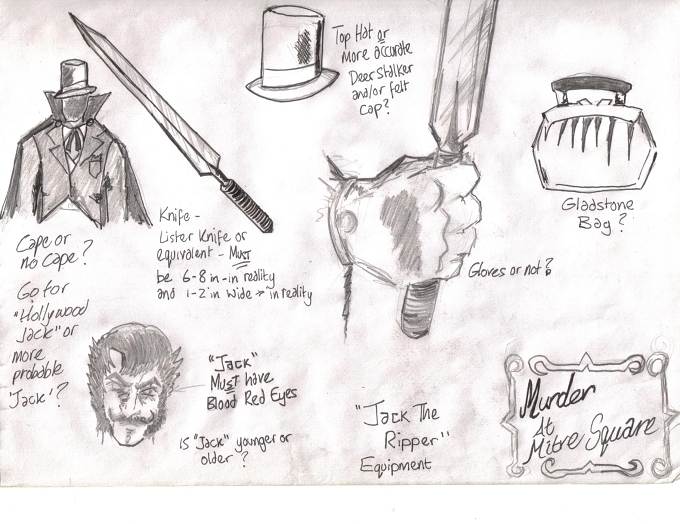 Top Hat or
More accurate
Deerstalker
and/or felt
Cap?
Gladstone
Bag?
Knife -
Lister Knife or
equivalent - Must
be 6-8 in - in reality
and 1-2 in wide → in reality
Cape or
no Cape?
Go for
"Hollywood
Jack" or
more
probable
'Jack'?
Gloves or not?
"Jack"
Must have
Blood Red Eyes
is "Jack" younger or
older?
"Jack The
Ripper"
Equipment
Murder
At
Mitre Square